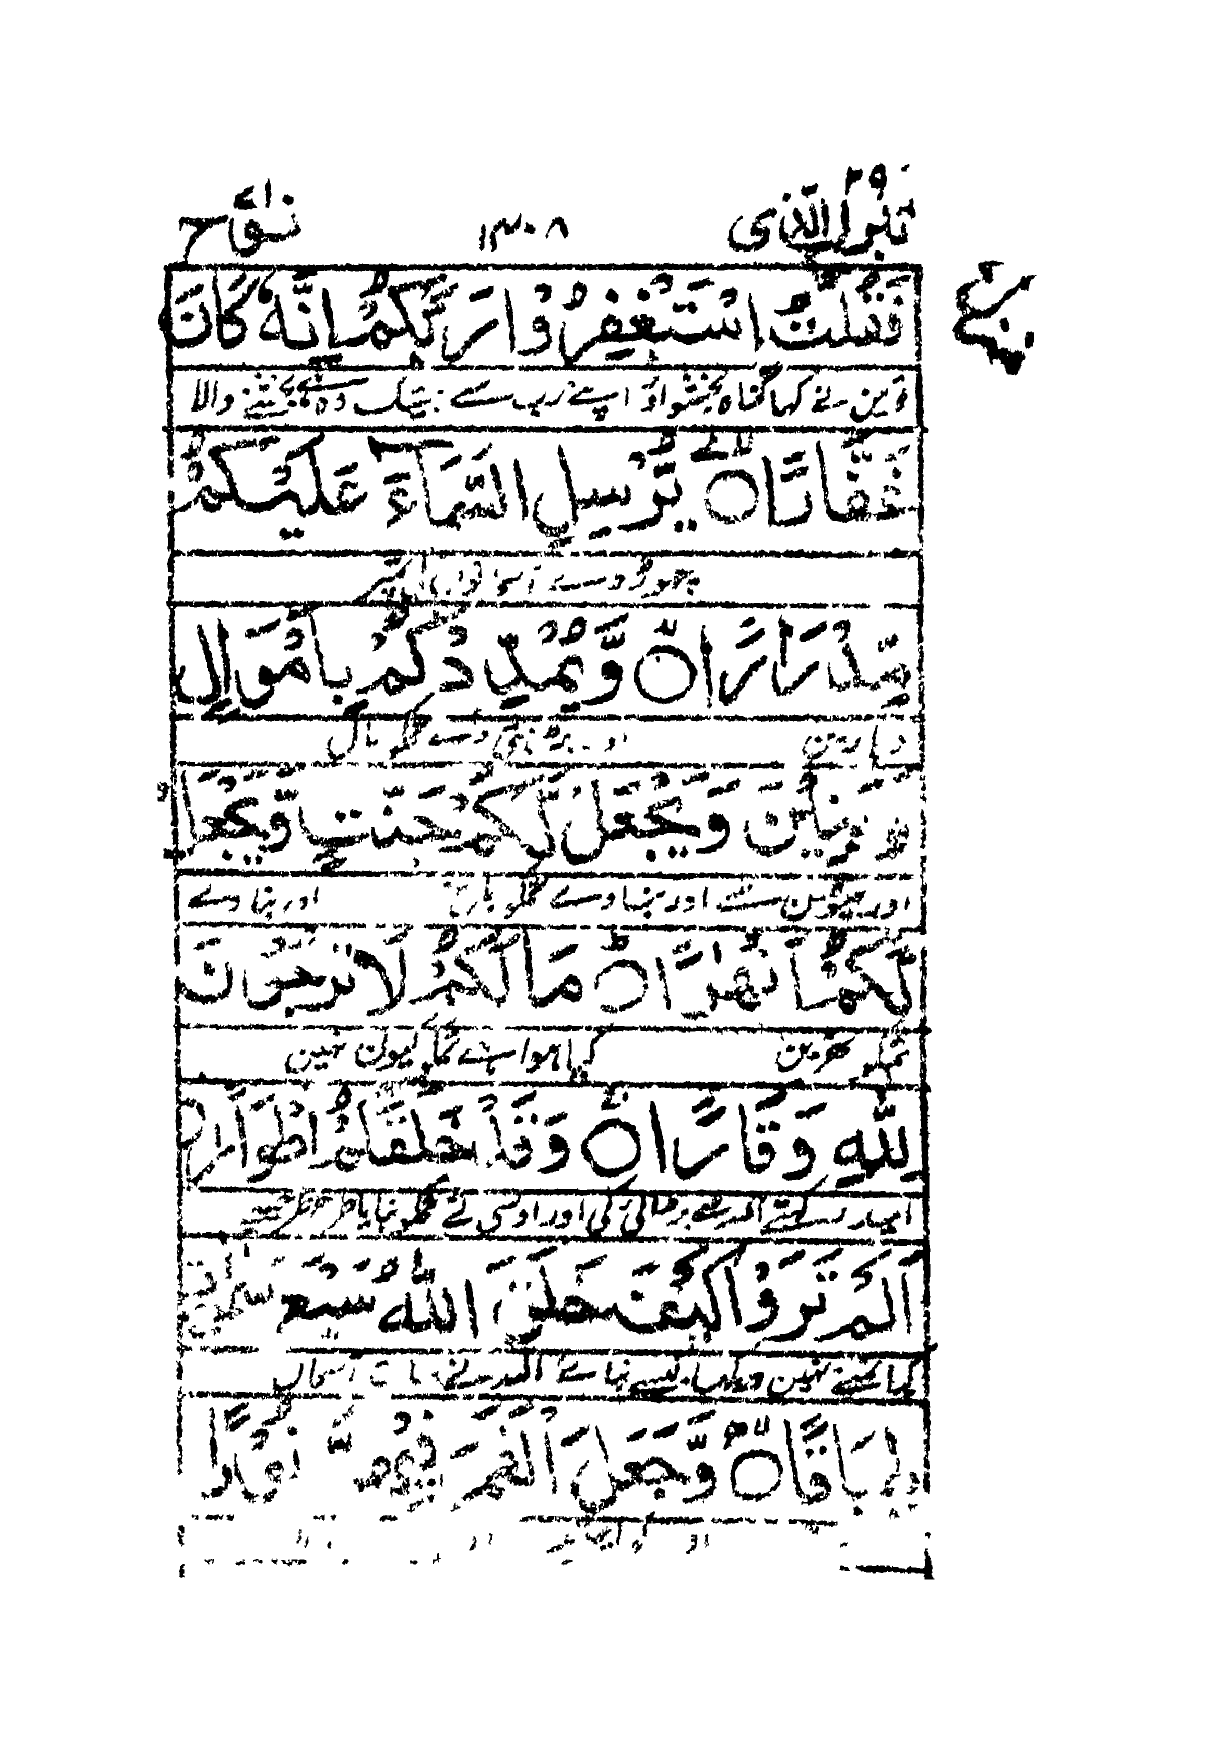 تبرك الذى ٢٩ ١٣٠٨ نوح
فَقُلْتُ اسْتَغْفِرُوْا رَبَّكُمْ اِنَّهٗ كَانَ
تو مین نے کہا گناہ بخشواؤ اپنے رب سے بیشک وہ ہے بخشنے والا
غَفَّارًا ۝ يُّرْسِلِ السَّمَآءَ عَلَيْكُمْ
چھوڑ دے آسمان
مِّدْرَارًا ۝ وَّيُمْدِدْكُمْ بِاَمْوَالٍ
دھارین اور بڑھتی دے تمکو مال
وَّبَنِيْنَ وَيَجْعَلْ لَّكُمْ جَنّٰتٍ وَّيَجْعَلْ
اور بیٹون سے اور بنا دے تمکو باغ اور بنا دے
لَّكُمْ اَنْهٰرًا ۝ مَا لَكُمْ لَا تَرْجُوْنَ
تمکو نہرین کیا ہوا ہے تمکو کیون نہین
لِلّٰهِ وَقَارًا ۝ وَقَدْ خَلَقَكُمْ اَطْوَارًا ۝
امید رکھتے اللہ سے بڑائی کی اور اوسی نے تمکو بنایا طرح طرح سے
اَلَمْ تَرَوْا كَيْفَ خَلَقَ اللّٰهُ سَبْعَ سَمٰوٰتٍ
کیا تمنے نہین دیکھا کیسے بنائے اللہ نے سات آسمان
طِبَاقًا ۝ وَّجَعَلَ الْقَمَرَ فِيْهِنَّ نُوْرًا